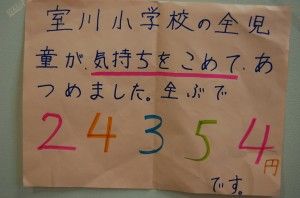 室川小学校の全児
童が、気持ちをこめて、あ
つめました。全ぶで
24354円
です。